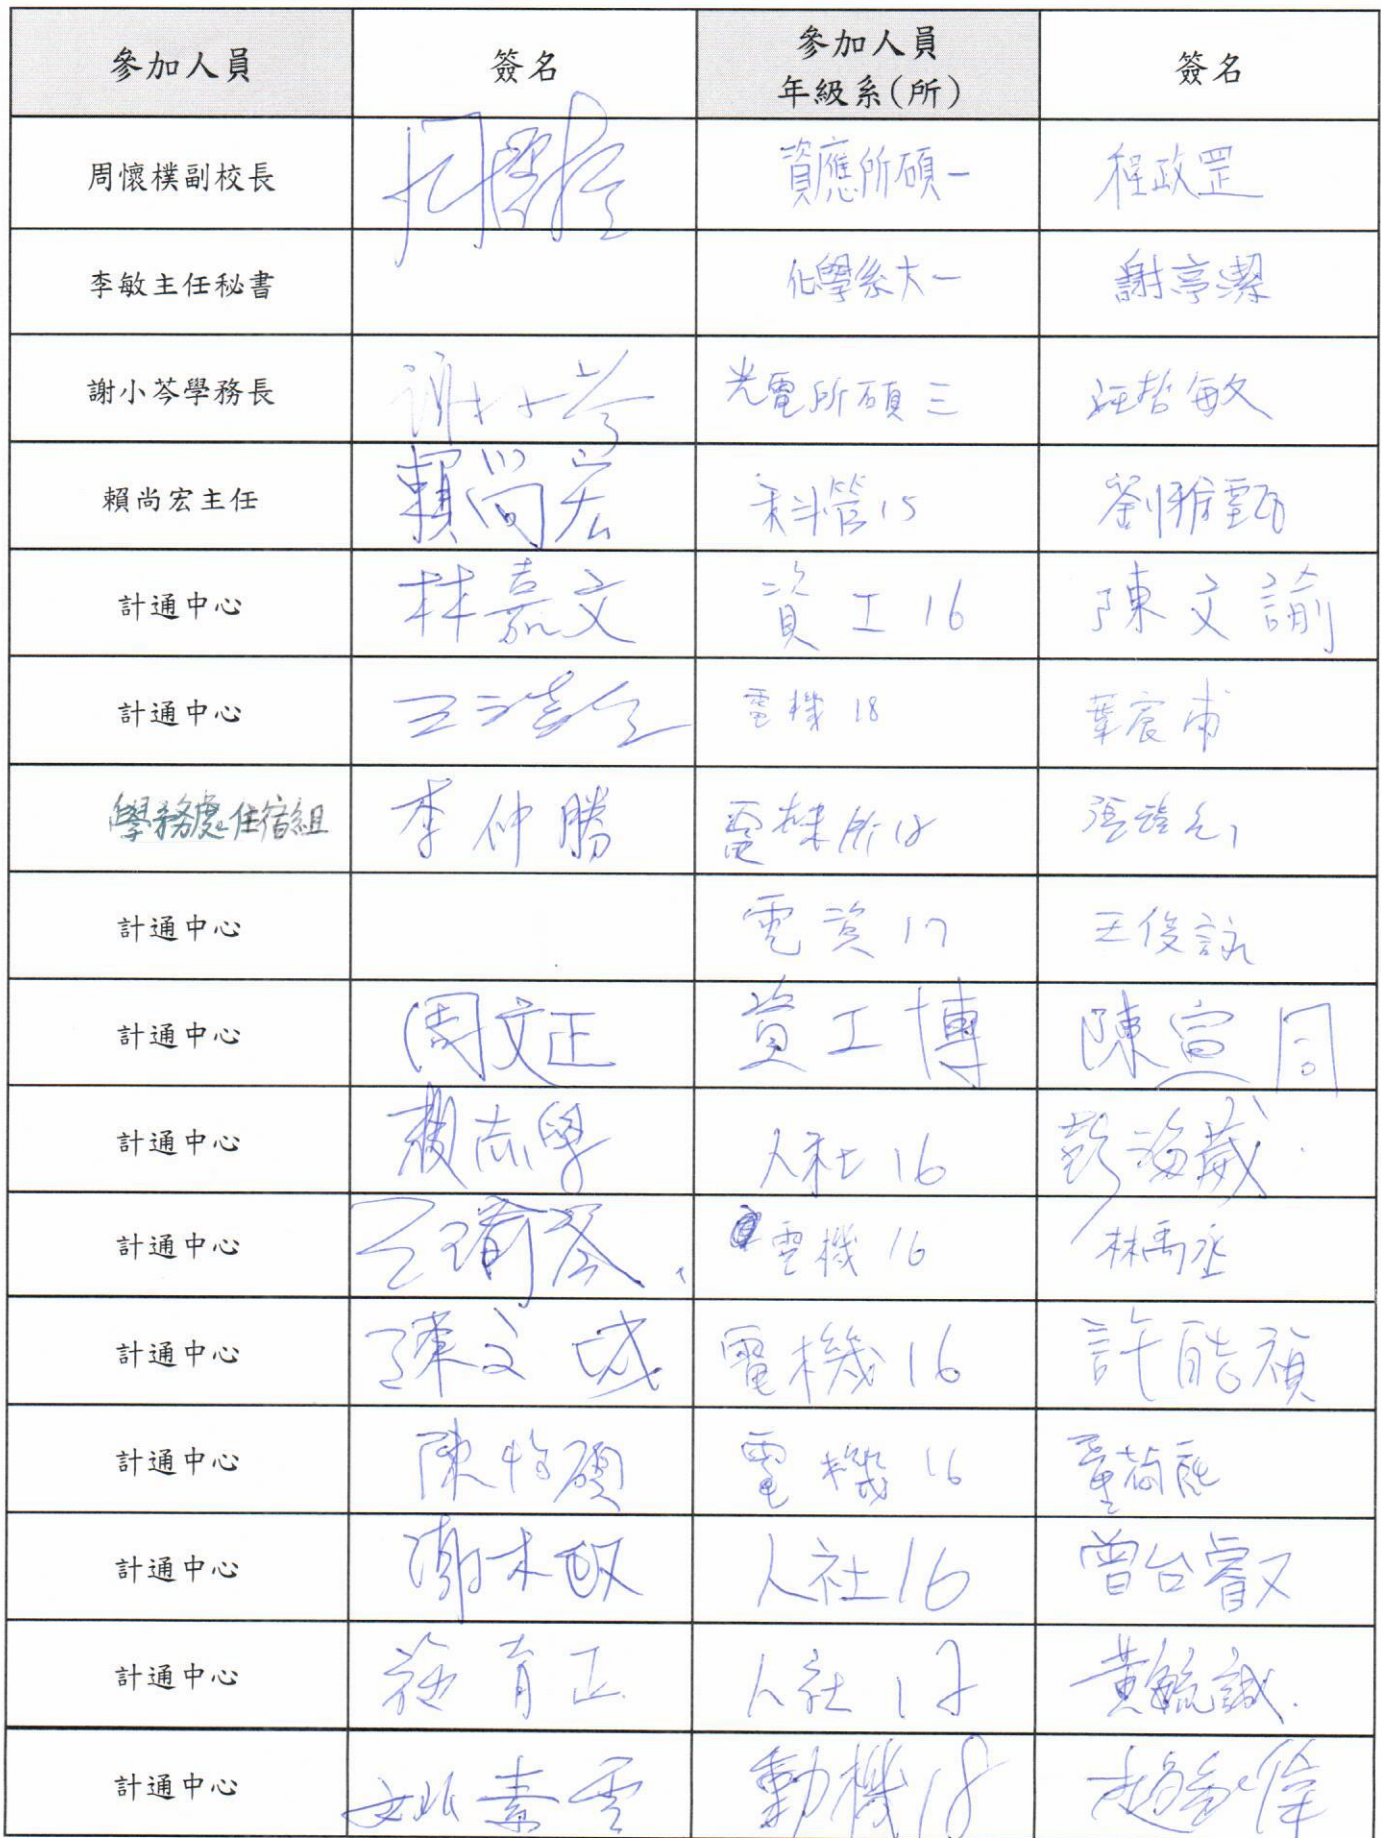 參加人員 簽名 參加人員 年級系(所) 簽名
周懷樸副校長 資應所碩一 程政罡
李敏主任秘書 化學系大一 謝亭潔
謝小芩學務長 謝小芩 光電所碩三 汪哲敏
賴尚宏主任 賴尚宏 科管15 劉雅甄
計通中心 林嘉文 資工16 陳文諭
計通中心 電機18 葉宸甫
學務處住宿組 李仲勝 電機所18
計通中心 電資17 王俊詠
計通中心 周文正 資工博 陳宣同
計通中心 志學 人社16 彭海葳
計通中心 王 電機16 林禹丞
計通中心 陳文 電機16 許酷禎
計通中心 陳怡碩 電機16 董
計通中心 人社16 曾台睿
計通中心 施育正 人社17 黃毓誠
計通中心 姚素雲 動機18 趙偉